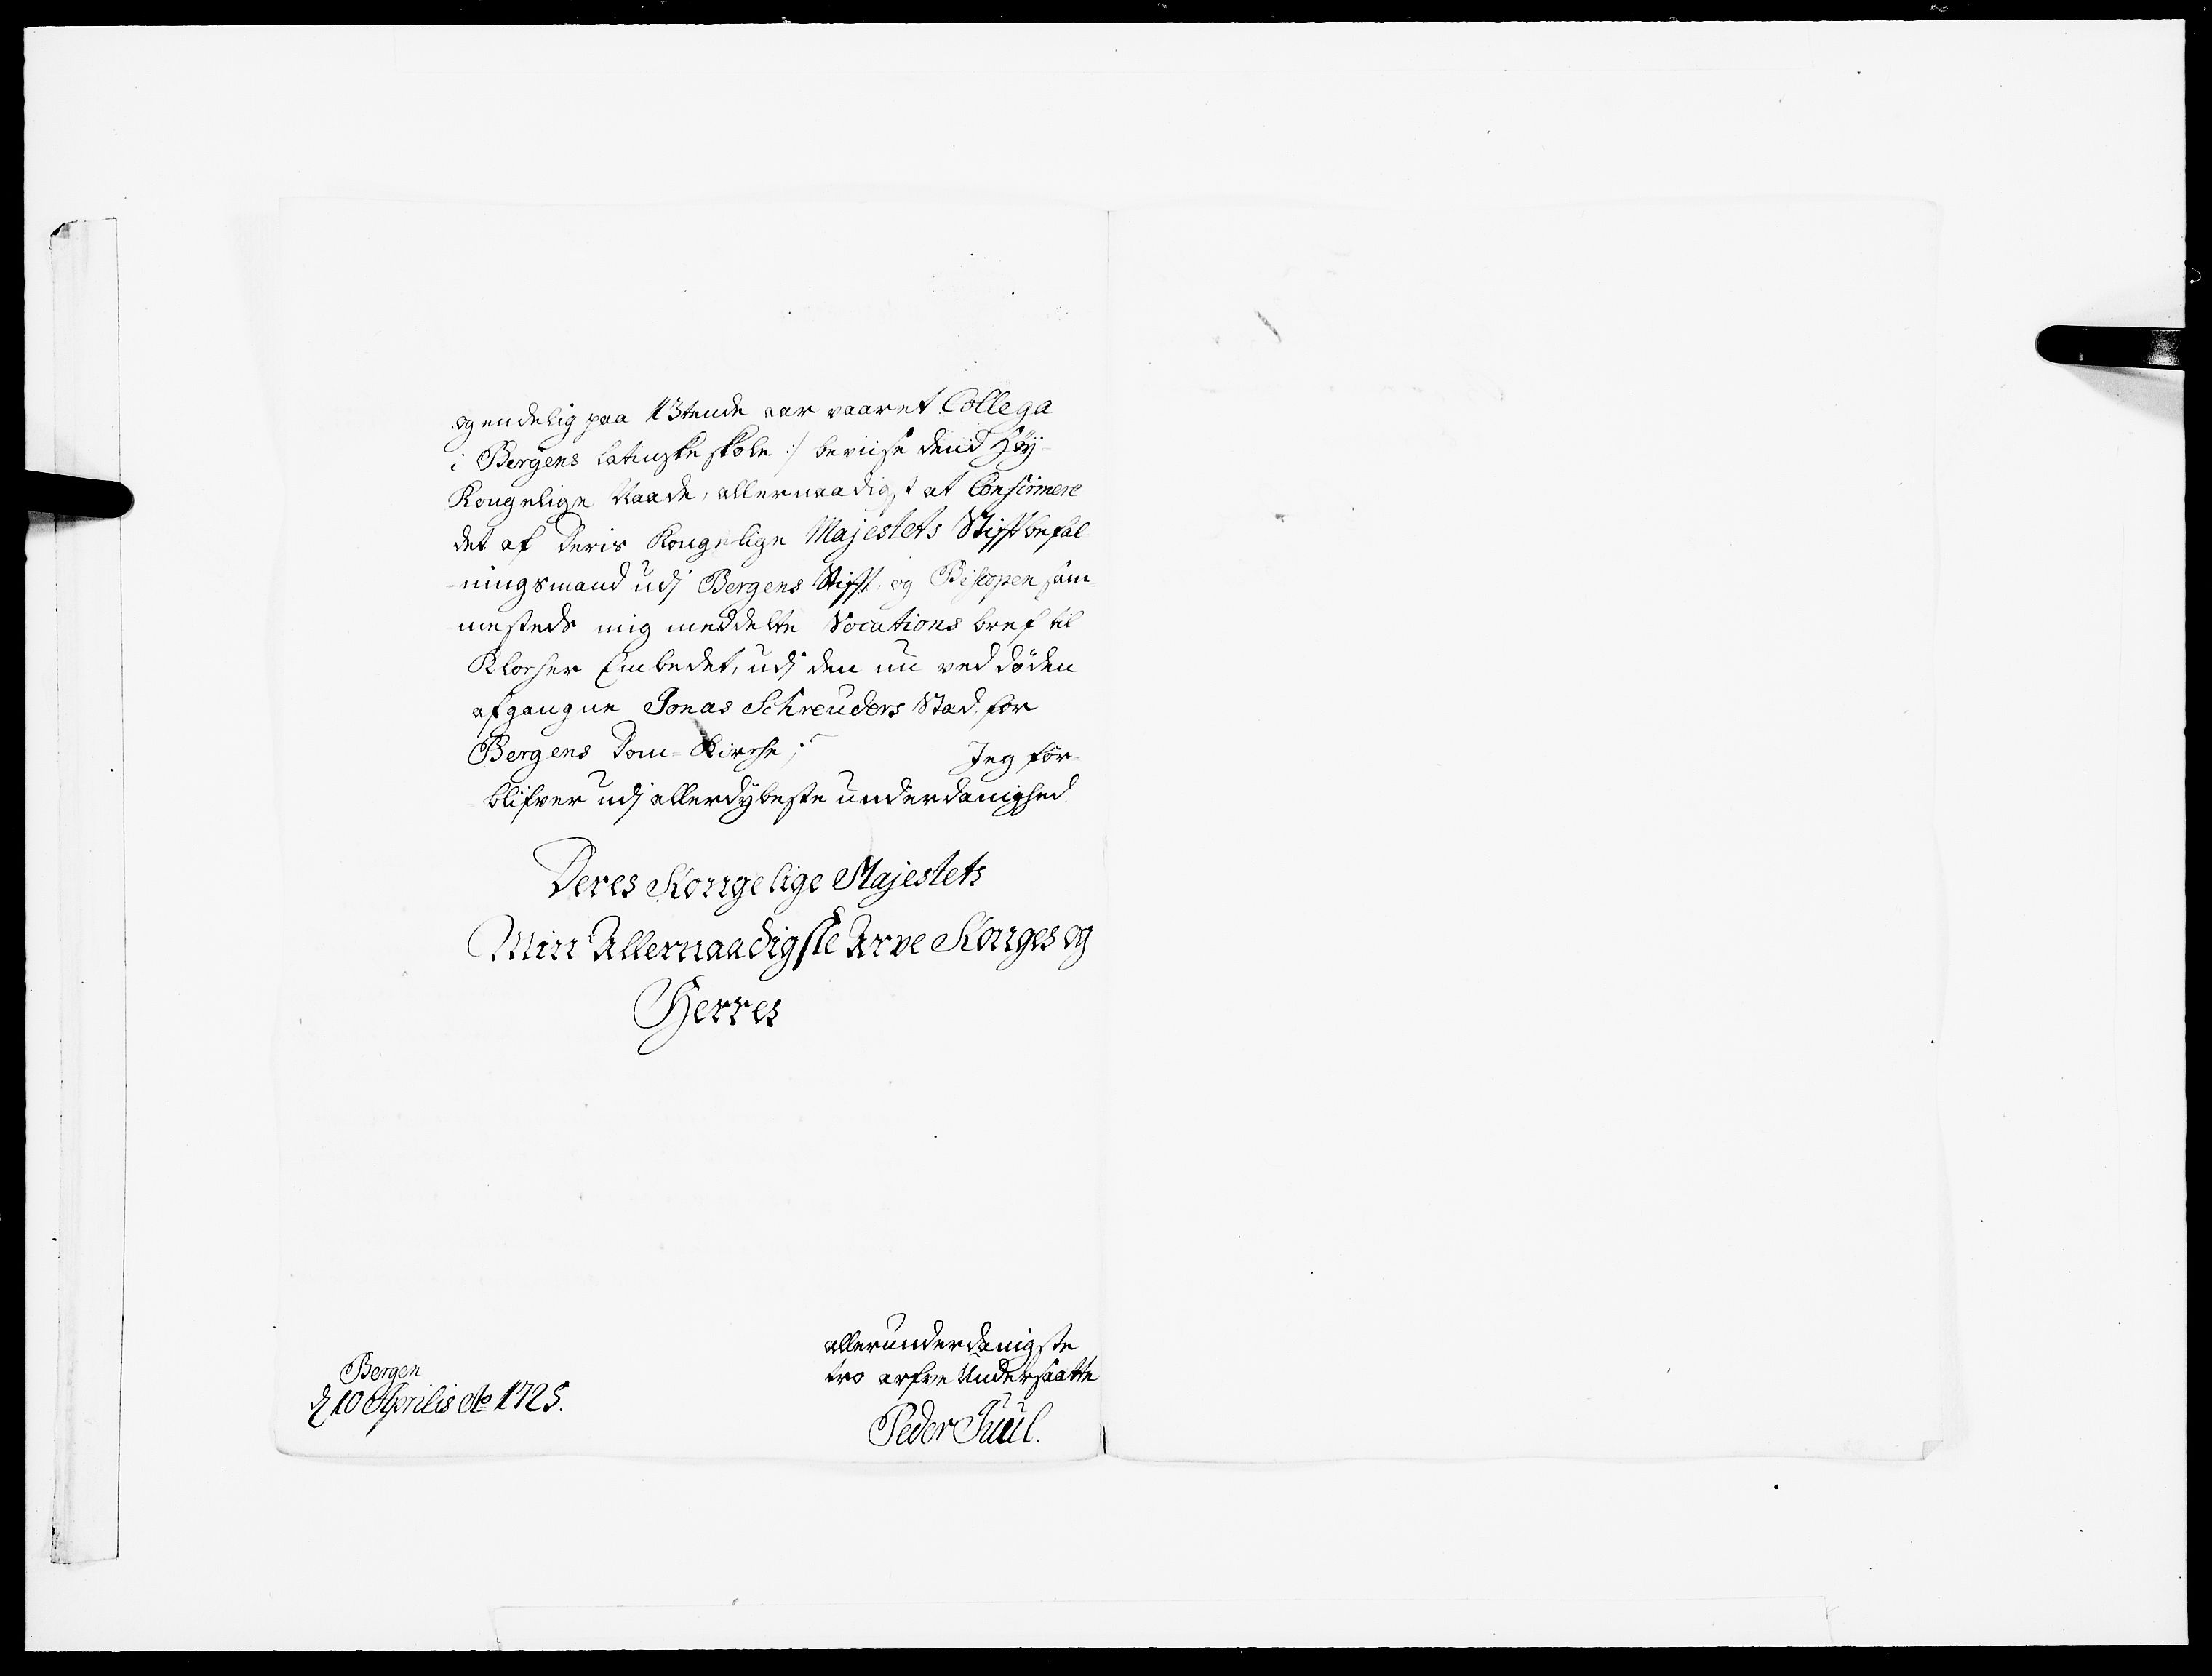 og endelig paa 13tende aar vaaret Collega
i Bergens latinske skole :/ beviise dend Høy-
Kongelige Naade, allernaadigst at Confirmere
det af Deris Kongelige Majestets Stiftbefal
-ningsmand udj Bergens Stift, og Biscopen sam-
mesteds mig meddelte Vocations bref til
Klocher Embedet, udj den nu ved døden
afgangne Jonas Schreuders Stad, for
Bergens Dom-Kirche; Jeg for-
blifver udj allerdybeste underdanighed
Deres Kongelige Majestets
Min Allernaadigste Arve Konges og
Herres
allerunderdanigste
tro arfve Undersaatte
Peder Juul.
Bergen
d 10 Aprilis Ao 1725.